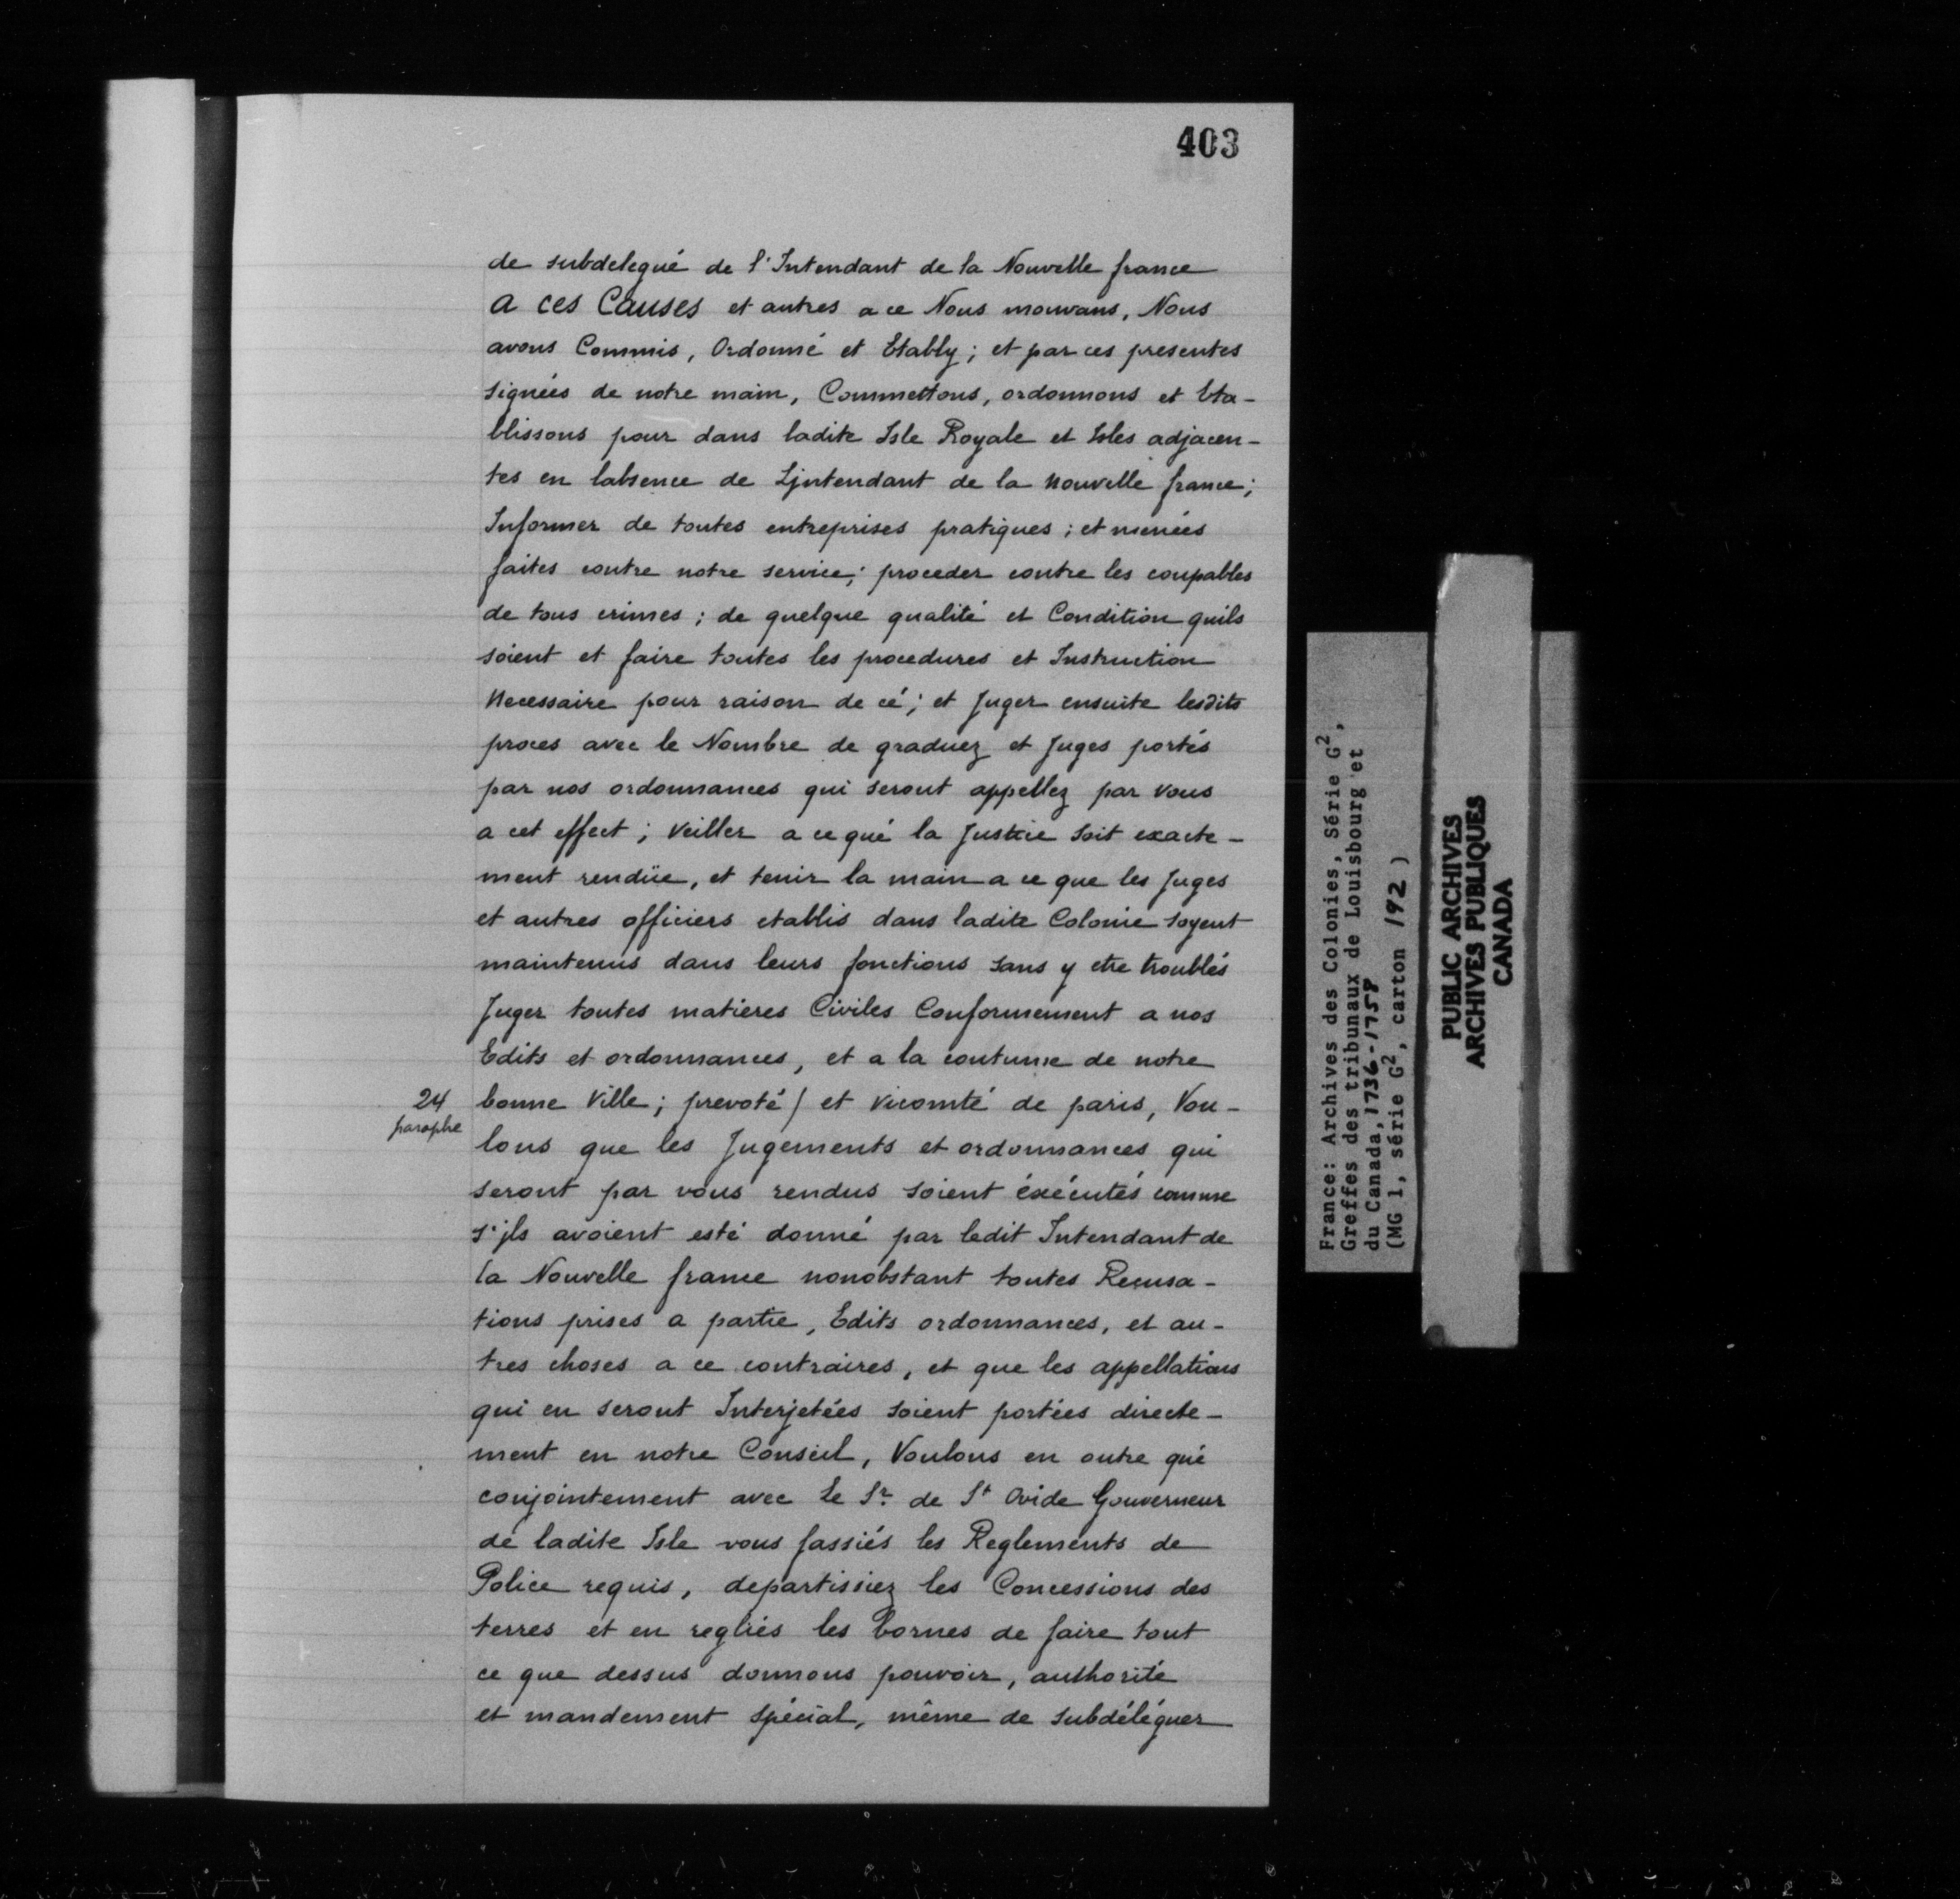 403
de subdelegué de l'Intendant de la Nouvelle france
a ces Causes et autres a ce Nous mouvans, Nous
avons Commis, Ordonné et Etably; et par ces presentes
signées de notre main, Commettons, ordonnons et Eta-
blissons pour dans ladite Isle Royale et Isles adjacen-
tes en labsence de Ljntendant de la nouvelle france;
Informer de toutes entreprises pratiques; et menées
faites contre notre service; proceder contre les coupables
de tous crimes; de quelque qualité et Condition quils
soient et faire toutes les procedures et Instruction
Necessaire pour raison de cé; et Juger ensuite lesdits
proces avec le Nombre de graduez et Juges portés
par nos ordonnances qui seront appellez par vous
a cet effect; veiller a ce qué la Justice soit exacte-
ment rendüe, et tenir la main a ce que les Juges
et autres officiers etablis dans ladite Colonie soyent
maintenus dans leurs fonctions sans y etre troublés
Juger toutes matieres Civiles Conformement a nos
Edits et ordonnances, et a la coutume de notre
24 paraphe
bonne Ville; prevoté / et vicomté de paris, Vou-
lons que les Jugements et ordonnances qui
seront par vous rendus soient éxécutés comme
s'jls avoient esté donné par ledit Intendant de
la Nouvelle france nonobstant toutes Recusa-
tions prises a partie, Edits ordonnances, et au-
tres choses a ce contraires, et que les appellations
qui en seront Interjetées soient portées directe-
ment en notre Conseil, Voulons en outre qué
conjointement avec Le Sr. de St Ovide Gouverneur
de ladite Isle vous fassiés les Reglements de
Police requis, departissiez les Concessions des
terres et en regliés les bornes de faire tout
ce que dessus donnons pouvoir, authorité
et mandement spécial, même de subdéléguer
France: Archives des Colonies, Série G2,
Greffes des tribunaux de Louisbourg et
du Canada, 1736-1758
(MG 1, série G2, carton 192 )
PUBLIC ARCHIVES
ARCHIVES PUBLIQUES
CANADA